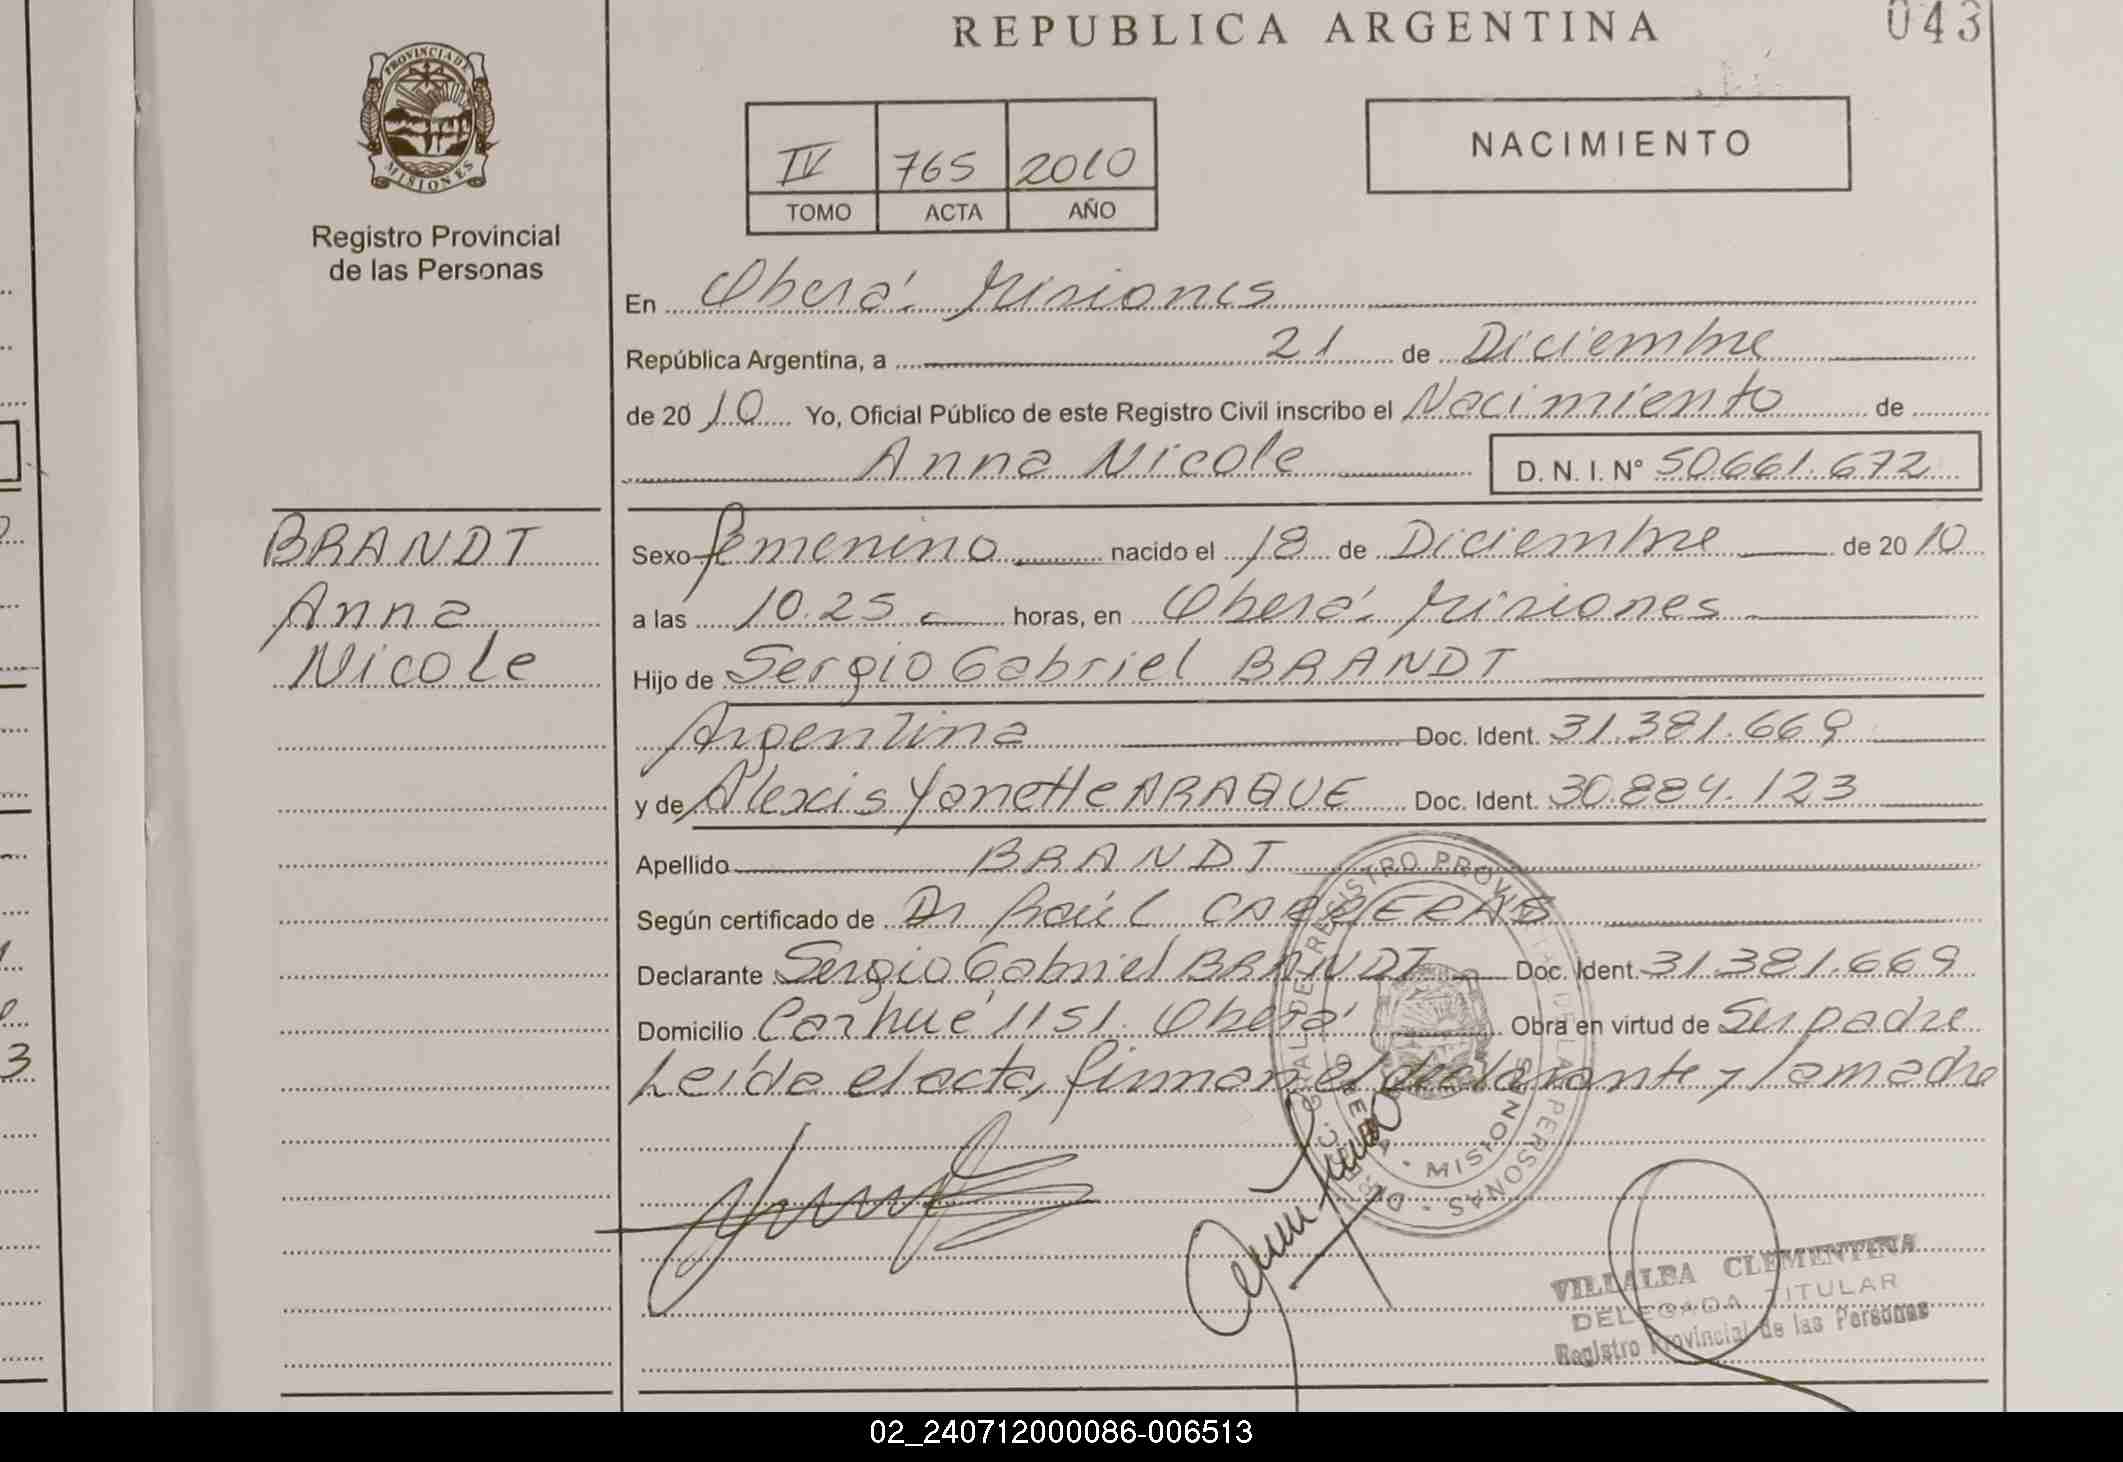 REPUBLICA ARGENTINA
043
PROVINCIA DE MISIONES
Registro Provincial
de las Personas
IV 765 2010
TOMO ACTA AÑO
NACIMIENTO
En Oberá Misiones
República Argentina, a 21 de Diciembre
de 2010 Yo, Oficial Público de este Registro Civil inscribo el Nacimiento de
Anna Nicole D. N. I. Nº 50.661.672
BRANDT
Anna
Nicole
Sexo femenino nacido el 18 de Diciembre de 2010
a las 10.25 horas, en Oberá Misiones
Hijo de Sergio Gabriel BRANDT
Argentina Doc. Ident. 31.381.669
y de Alexis Yanette ARAQUE Doc. Ident. 30.884.123
Apellido BRANDT
Según certificado de Dr Raúl CARRERAS
Declarante Sergio Gabriel BRANDT Doc. Ident. 31.381.669
Domicilio Carhué 1151. Oberá Obra en virtud de Ser padre
Leída el acta, firman el declarante y la madre
MISIONES
VILLALBA CLEMENTINA
DELEGADA TITULAR
Registro Provincial de las Personas
02_240712000086-006513